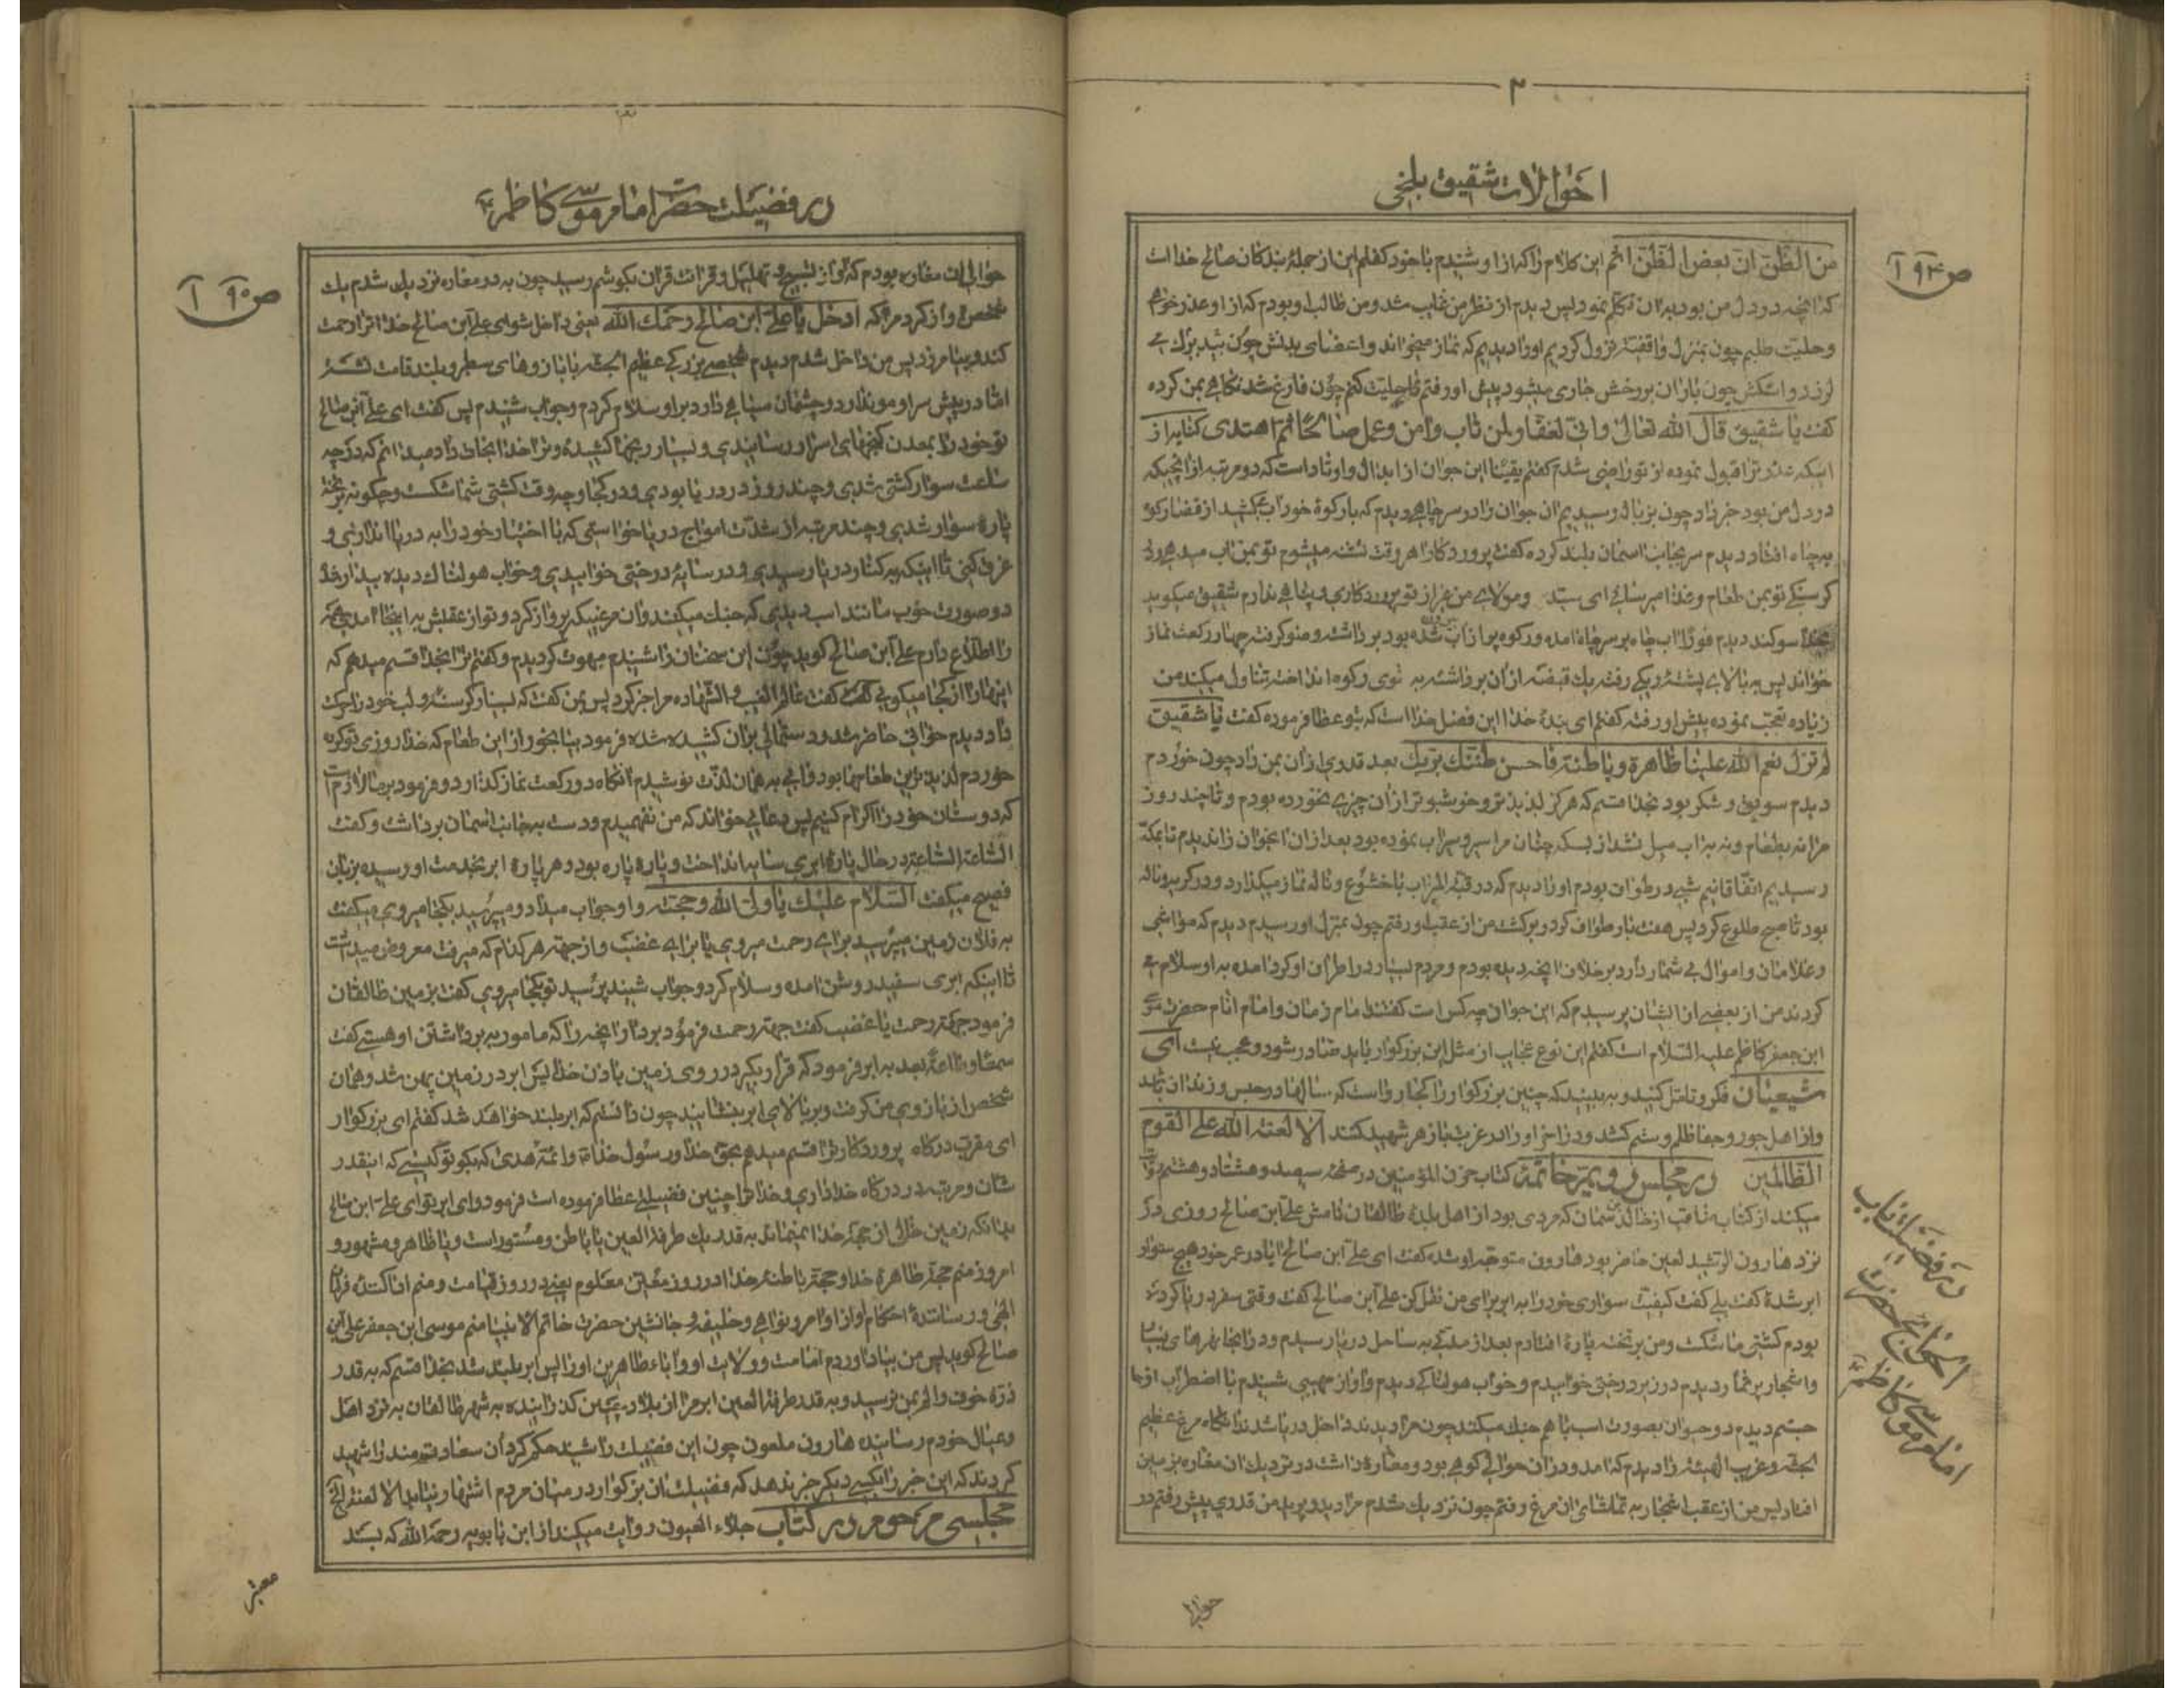 ۲
احوالات شقیق بلخی
ص ۱۹۴
من الظن ان بعض الظن اثم این کلام را که از او شنیدم با خود گفتم این از جمله بندگان صالح خدا است
که آنچه در دل من بود به آن تکلم نمود پس دیدم از نظر من غایب شد و من طالب او بودم که از او عذر خواهم
و حلیت طلبم چون بمنزل واقفته نزول کردیم او را دیدیم که نماز میخواند و اعضای بدنش چون بید بزرگ می
لرزد و اشکش چون باران بر رخش جاری میشود پیش او رفتم تا حلیت کنم چون فارغ شد نگاهی بمن کرده
گفت یا شقیق قال الله تعالی وانی لغفار لمن تاب وامن وعمل صالحا ثم اهتدی کنایه از
اینکه عذر ترا قبول نموده از تو راضی شدم گفتم یقینا این جوان از ابدال و اوتاد است که دو مرتبه از آنچه که
در دل من بود خبر داد چون بزباله رسیدیم آن جوان را در سر چاهی دیدم که با رکوه خود آب بکشید از قضا رکوه
به چاه افتاد دیدم سر بجانب آسمان بلند کرده گفت پروردگارا هر وقت تشنه میشوم تو بمن آب میدهی ولی
گرسنگی تو بمن طعام و غذا میرسانی ای سید و مولای من غیر از تو پروردگاری و پناهی ندارم شقیق میگوید
بخدا سوگند دیدم فورا آب چاه بر سر چاه آمده و رکوه پر از آب شده بود برداشت و وضو گرفت چهار رکعت نماز
خواند پس به بالای پشته ریگی رفته یک قبضه از آن برداشته به توی رکوه انداخته تناول میکند من
زیاده تعجب نموده پیش او رفته گفتم ای بنده خدا این فضل خدا است که بتو عطا فرموده گفت یا شقیق
لم تزل نعم الله علینا ظاهرة وباطنة فاحسن ظنک بربک بعد قدری از آن بمن داد چون خوردم
دیدم سویق و شکر بود بخدا قسم که هرگز لذیذتر و خوشبوتر از آن چیزی نخورده بودم و تا چند روز
مرا نه بطعام و نه به آب میل نشد از بسکه چنان مرا سیر و سیراب نموده بود بعد از آن آنجوان را ندیدم تا بمکه
رسیدیم اتفاقا نیم شبی در طواف بودم او را دیدم که در قبة المیزاب با خشوع و ناله نماز میگذارد و در گریه و ناله
بود تا صبح طلوع کرد پس هفت بار طواف کرد و برگشت من از عقب او رفتم چون بمنزل او رسیدم دیدم که مواشی
و غلامان و اموال بی شمار دارد بر خلاف آنچه دیده بودم و مردم بسیار در اطراف او گرد آمده به او سلام می
کردند من از بعضی از ایشان پرسیدم که این جوان چه کس است گفتند امام زمان و امام انام حضرت موسی
ابن جعفر کاظم علیه السلام است گفتم این نوع عجایب از مثل این بزرگوار باید صادر شود و عجب نیست ای
شیعیان فکر و تامل کنید و به بینید که چنین بزرگوار را کجا روا است که سالها در حبس و زندان باشد
و از اهل جور و جفا ظلم و ستم کشد و در آخر او را در غربت با زهر شهید کنند الا لعنة الله علی القوم
الظالمین در مجلس خاتمه کتاب حزن المؤمنین در صفحه سیصد و هشتاد و هشتم روایت
میکند از کتاب ثاقب از خالد سمان که مردی بود از اهل بلده طالقان نامش علی ابن صالح روزی در
نزد هارون الرشید لعین حاضر بود هارون متوجه او شده گفت ای علی ابن صالح آیا در عمر خود هیچ سوار
ابر شده گفت بلی گفت کیفیت سواری خود را به ابر برای من نقل کن علی ابن صالح گفت وقتی سفر دریا کرده
بودم کشتی ما شکست و من بر تخته پاره افتادم بعد از مدتی به ساحل دریا رسیدم و در آنجا نهرهای بسیار
و اشجار پر ثمار دیدم در زیر درختی خوابیدم و خواب هولناکی دیدم و آواز مهیبی شنیدم با اضطراب از جا
جستم دیدم دو حیوان بصورت اسب با هم جنگ میکنند چون مرا دیدند داخل دریا شدند آنگاه مرغ عظیم
الجثه و غریب الهیئه را دیدم که آمد و در آن حوالی کوهی بود و مغاره داشت در نزدیک آن مغاره بزمین
افتاد پس من از عقب اشجار به تماشای آن مرغ رفتم چون نزدیک شدم مرا دید و پرید من قدری پیش رفتم در
در فضیلت باب
الحوائج حضرت
امام موسی کاظم
حوالی
در فضیلت حضرت امام موسی کاظم
ص ۱۹۵
حوالی آن مغاره بودم که آواز تسبیح و تهلیل و قرائت قرآن بگوشم رسید چون به در مغاره نزدیک شدم یک
شخص آواز کرد مرا که ادخل یا علی ابن صالح رحمک الله یعنی داخل شو ای علی ابن صالح خدا ترا رحمت
کند و بیامرزد پس من داخل شدم دیدم شخصی بزرگی عظیم الجثه با بازوهای سطبر و بلند قامت نشسته
اما در پیش سر او مو ندارد و چشمان سیاهی دارد بر او سلام کردم و جواب شنیدم پس گفت ای علی ابن صالح
تو خود را بمعدن گنجهای اسرار رسانیدی و بسیار رنجها کشیده و ترا خدا نجات داد میدانم که در چه
ساعت سوار کشتی شدی و چند روز در دریا بودی و در کجا و چه وقت کشتی شما شکست و چگونه بر تخته
پاره سوار شدی و چند مرتبه از شدت امواج دریا خواستی که با اختیار خود را به دریا اندازی و
غرق کنی تا اینکه به کنار دریا رسیدی و در سایه درختی خوابیدی و خواب هولناک دیده بیدار شده
دو صورت خوب مانند اسب دیدی که جنگ میکنند و آن مرغیکه پرواز کرد و تو از عقبش به اینجا آمدی همه
را اطلاع دارم علی ابن صالح گوید چون این سخنان را شنیدم مبهوت گردیدم و گفتم ترا بخدا قسم میدهم که
اینها را از کجا میگوئی گفت عالم الغیب والشهاده مرا خبر کرد پس بمن گفت که بسیار گرسنه و لب خود را حرکت
داد دیدم خوانی حاضر شد و دستمالی بر آن کشیده شده فرمود بیا بخور از این طعام که خدا روزی تو کرده
خوردم لذیذترین طعامها بود و آبی به همان لذت نوشیدم آنگاه دو رکعت نماز گذارد و فرمود بر ما لازم است
که دوستان خود را اکرام کنیم پس دعائی خواند که من نفهمیدم و دست به جانب آسمان برداشت و گفت
الساعة الساعة در حال پاره ابری سایه انداخت و پاره پاره بود و هر پاره ابر بخدمت او رسیده بزبان
فصیح میگفت السلام علیک یا ولی الله وحجته و او جواب میداد و میپرسید بکجا میروی میگفت
به فلان زمین میپرسید برای رحمت میروی یا برای غضب و از جهت هر کدام که میرفت معروض میداشت
تا اینکه ابری سفید روشن آمده و سلام کرد و جواب شنید پرسید تو بکجا میروی گفت بزمین طالقان
فرمود جهت رحمت یا غضب گفت جهت رحمت فرمود بردار آنچه را که مامور به برداشتن او هستی گفت
سمعا وطاعة بعد به ابر فرمود که قرار بگیر در روی زمین باذن خدا پس ابر در زمین پهن شد و همان
شخص از بازوی من گرفت و بر بالای ابر بنشانید چون دانستم که ابر بلند خواهد شد گفتم ای بزرگوار
ای مقرب درگاه پروردگار ترا قسم میدهم بحق خدا و رسول خدا و ائمه هدی که بگو تو کیستی که اینقدر
شان و مرتبه در درگاه خدا داری و خدا ترا چنین فضیلتی عطا فرموده است فرمود وای بر تو ای علی ابن صالح
بدانکه زمین خالی از حجة خدا نمیماند به قدر یک طرفة العین یا باطن و مستور است و یا ظاهر و مشهور و
امروز منم حجة ظاهره خدا و حجة باطنه خدا در روز معین معلوم یعنی در روز قیامت و منم ادا کننده فرمان
الهی و رساننده احکام او از اوامر و نواهی و خلیفه و جانشین حضرت خاتم الانبیا منم موسی ابن جعفر علی ابن
صالح گوید پس من بیاد آوردم امامت و ولایت او و آباء طاهرین او را پس ابر بلند شد بخدا قسم که به قدر
ذره خوف و الم بمن نرسید و به قدر طرفة العین ابر مرا از بلاد چین گذرانیده به شهر طالقان به نزد اهل
و عیال خودم رسانید هارون ملعون چون این فضیلت را شنید حکم کرد آن سعادتمند را شهید
کردند که این خبر را بکسی دیگر خبر ندهد که فضیلت آن بزرگوار در میان مردم اشتهار نیابد الا لعنة الخ
مجلسی مرحوم در کتاب جلاء العیون روایت میکند از ابن بابویه رحمه الله که بسند
معتبر